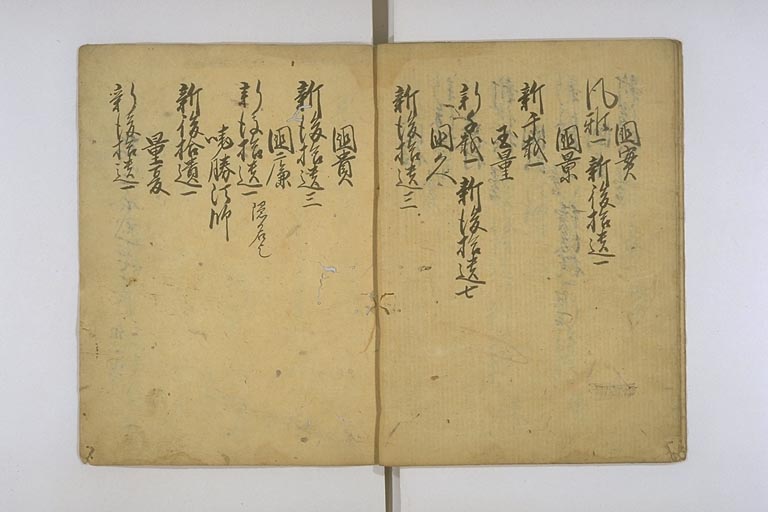 國實
風雅一 新後拾遺一
國景
新千載一
国量
新千載一 新後拾遺七
國久
新後拾遺三
國貴
新後拾遺三
國廉
新後拾遺一
勝法師
新後拾遺一
量夏
新後拾遺一